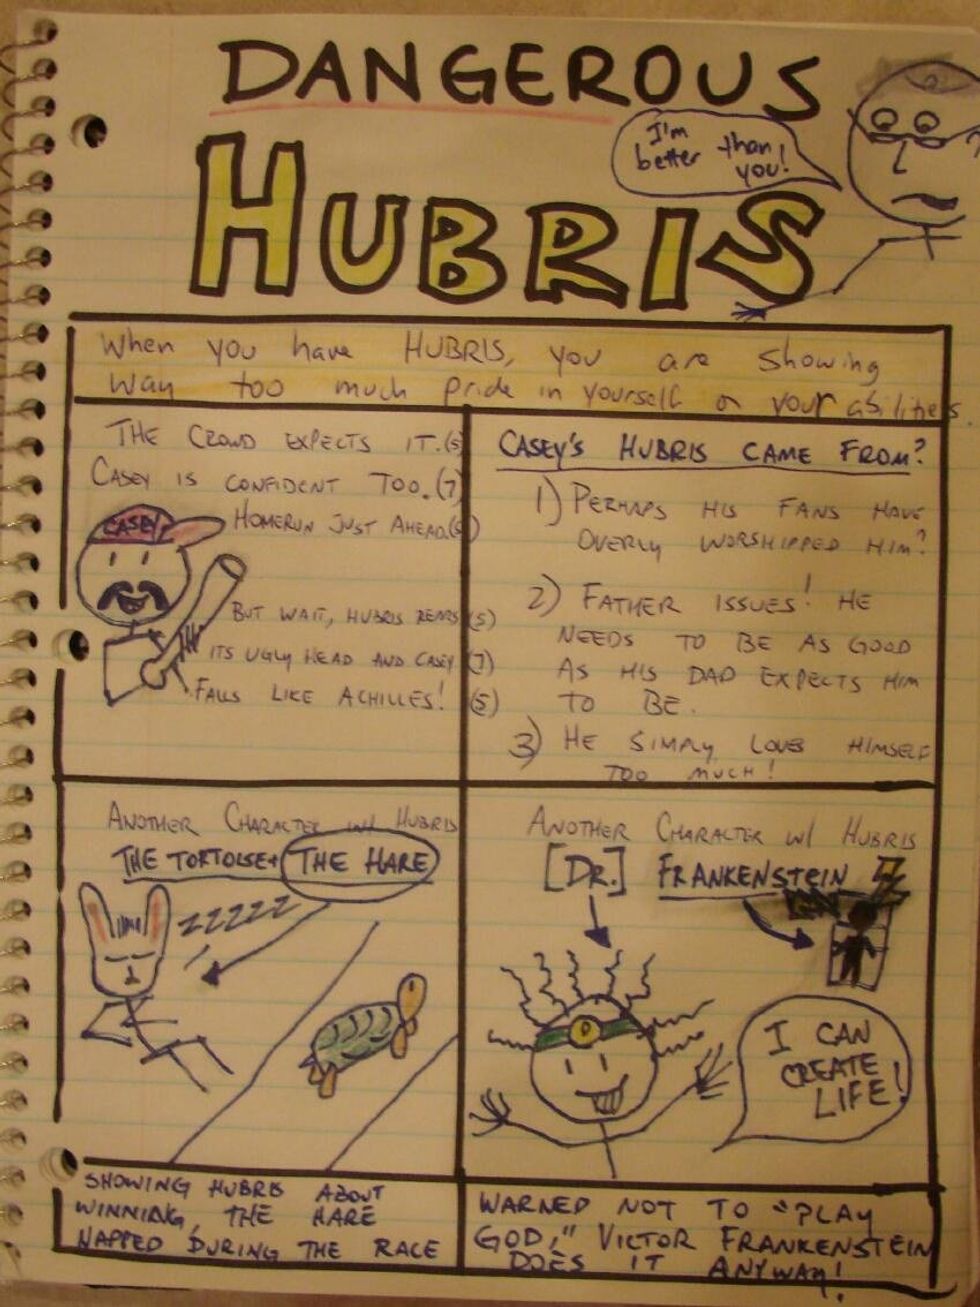 DANGEROUS
I'm
better than
you!
HUBRIS
When you have HUBRIS, you are showing
way too much pride in yourself or your abilities.
THE CROWD EXPECTS IT. (5)
CASEY IS CONFIDENT TOO. (7)
HOMERUN JUST AHEAD. (5)
CASEY
BUT WAIT, HUBRIS REARS (5)
ITS UGLY HEAD AND CASEY (7)
FALLS LIKE ACHILLES! (5)
CASEY'S HUBRIS CAME FROM?
1) PERHAPS HIS FANS HAVE
OVERLY WORSHIPPED HIM?
2) FATHER ISSUES! HE
NEEDS TO BE AS GOOD
AS HIS DAD EXPECTS HIM
TO BE.
3) HE SIMPLY LOVES HIMSELF
TOO MUCH!
ANOTHER CHARACTER W/ HUBRIS
THE TORTOISE + THE HARE
ZZZZZ
ANOTHER CHARACTER W/ HUBRIS
[DR.] FRANKENSTEIN
I CAN
CREATE
LIFE!
SHOWING HUBRIS ABOUT
WINNING, THE HARE
NAPPED DURING THE RACE
WARNED NOT TO "PLAY
GOD," VICTOR FRANKENSTEIN
DOES IT ANYWAY!